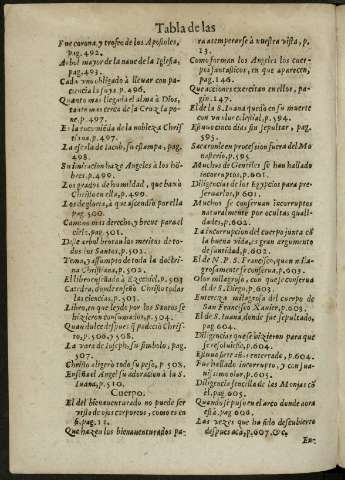 Tabla de las
Fue corona, y trofeo de los Apostoles,
pag. 492.
Arbol mayor de la naue de la Iglesia,
pag. 493.
Cada vno obligado à lleuar con pa-
ciencia la suya. p. 496.
Quanto mas llegada el alma à Dios,
tanto mas cerca de la Cruz la po-
ne, p. 497.
Es la nobleza Chris-
tiana, p. 497.
La escala de Iacob, su estampa, pag.
498.
Su imitacion haze Angeles à los hō-
bres, p. 499.
Los grados de humildad, que baxò
Christo en ella, p. 499.
Los de gloria, à que ascendiò por ella
pag. 500.
Camino mas derecho, y breue para el
cielo, pag. 501.
Deste arbol brotan los meritos de to-
dos los Santos, p. 502.
Tema, y assumpto de toda la doctri-
na Christiana, p. 502.
El libro enseñado à Ezequiel, p. 503
Catedra, donde enseñò Christo todas
las ciencias, p. 503.
Libro, en que leydo por los Santos se
hizieron consumados, p. 504.
Quan dulce despues q̃ padeciò Chris-
to, p. 506, y 508.
La vara de Ioseph, su simbolo, pag.
507.
Christo aligerò todo su peso, p. 508.
Enseña el Angel su adoracion à la S.
Iuana, p. 510.
Cuerpo.
El del bienauenturado no puede ser
visto de ojos corporeos, como es en
si, pag. 12.
Que hazen los bienauenturados pa-
ra atemperarse à nuestra vista, p.
13.
Como forman los Angeles los cuer-
pos fantasticos, en que aparecen,
pag. 146.
Que acciones exercitan en ellos, pa-
gin. 147.
El de la S. Iuana queda en su muerte
con vn olor celestial, p. 594.
Estuuo cinco dias sin sepultar, pag.
595.
Sacaronle en procesion fuera del Mo
nasterio, p. 595
Muchos de Gentiles se han hallado
incorruptos, p. 601.
Diligencias de los Egypcios para pre-
seruarlos, p. 601.
Muchos se conseruan incorruptos
naturalmente por ocultas quali-
dades, p. 602.
La incorrupcion del cuerpo junta cō
la buena vida, es gran argumento
de santidad, p. 602.
El de N. P. S. Francisco, quan mila-
grosamente se conserua, p. 603.
Olor milagroso, con que se conserua
el de S. Diego, p. 603.
Entereza milagrosa del cuerpo de
San Francisco Xauier, p. 603.
El de S. Iuana, donde fue sepultado,
pag 604.
Diligencias que se hizieron para que
se resoluiesse, p. 604.
Estuuo siete años enterrado, p. 604.
Fue hallado incorrupto, y con sua-
uissimo olor, p. 605.
Diligencia sencilla de las Monjas cō
el, pag. 605.
Quando se puso en el arco donde aora
està, pag. 606.
Las vezes que ha sido descubierto
despues acà, p. 607. &c.
En-